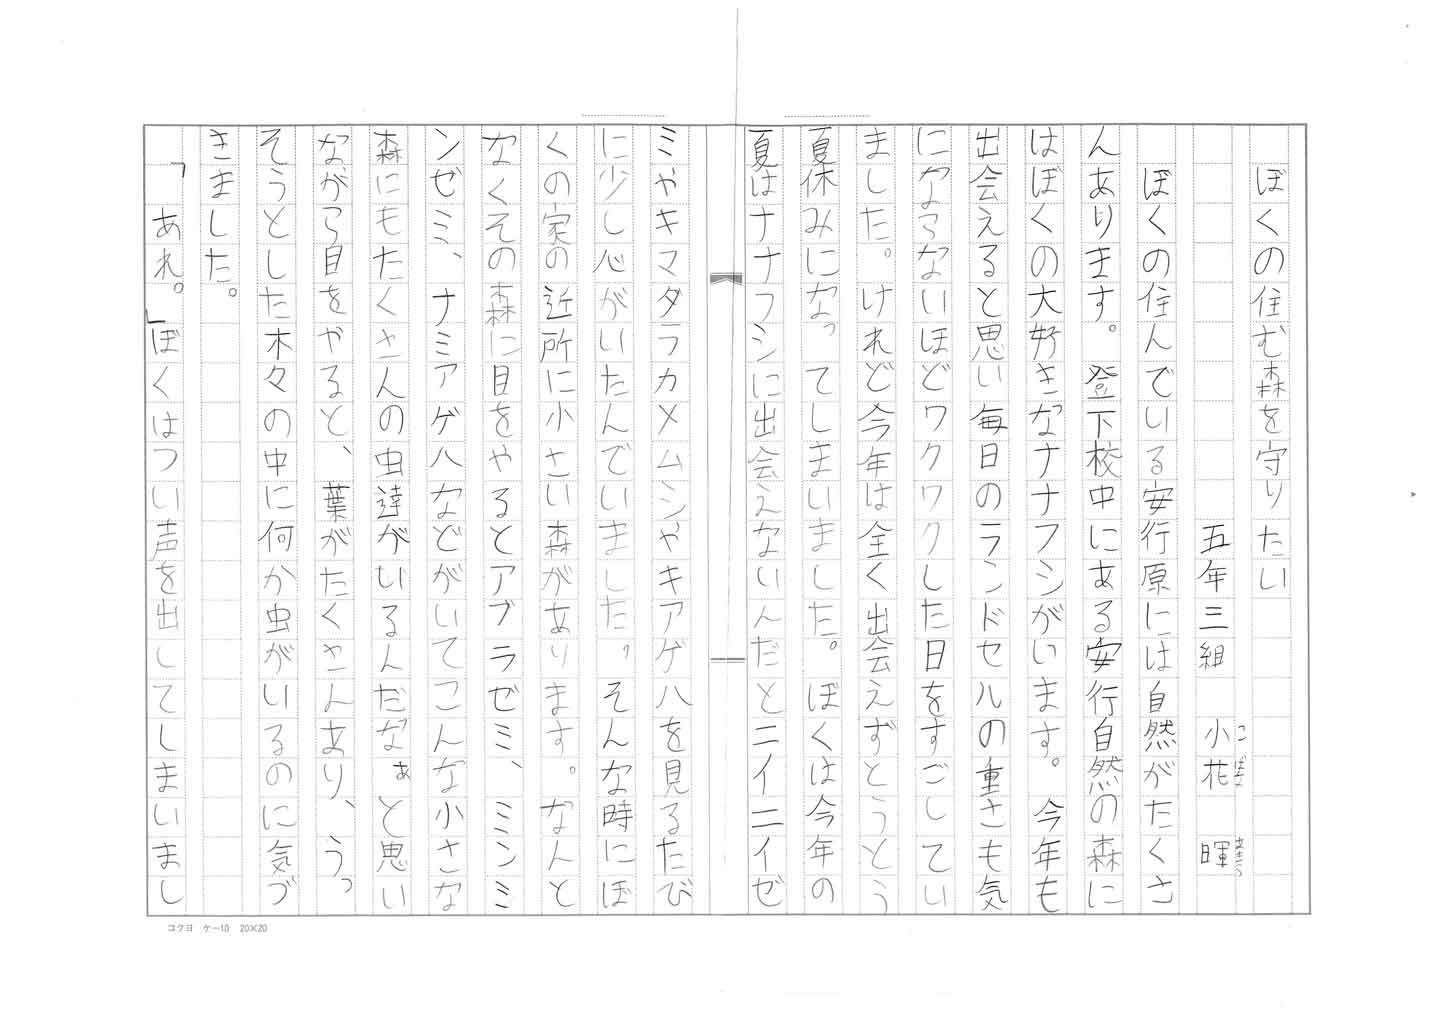 ぼくの住む森を守りたい
五年三組　小花　暉
こ ばな　あきら
ぼくの住んでいる安行原には自然がたくさ
んあります。登下校中にある安行自然の森に
はぼくの大好きなナナフシがいます。今年も
出会えると思い毎日のランドセルの重さも気
にならないほどワクワクした日をすごしてい
ました。けれど今年は全く出会えずとうとう
夏休みになってしまいました。ぼくは今年の
夏はナナフシに出会えないんだとニイニイゼ
ミやキマダラカメムシやキアゲハを見るたび
に少し心がいたんでいました。そんな時にぼ
くの家の近所に小さい森があります。なんと
なくその森に目をやるとアブラゼミ、ミンミ
ンゼミ、ナミアゲハなどがいてこんな小さな
森にもたくさんの虫達がいるんだなぁと思い
ながら目をやると、葉がたくさんあり、うっ
そうとした木々の中に何か虫がいるのに気づ
きました。
「あれ。」ぼくはつい声を出してしまいまし
コクヨ　ケー10　20×20